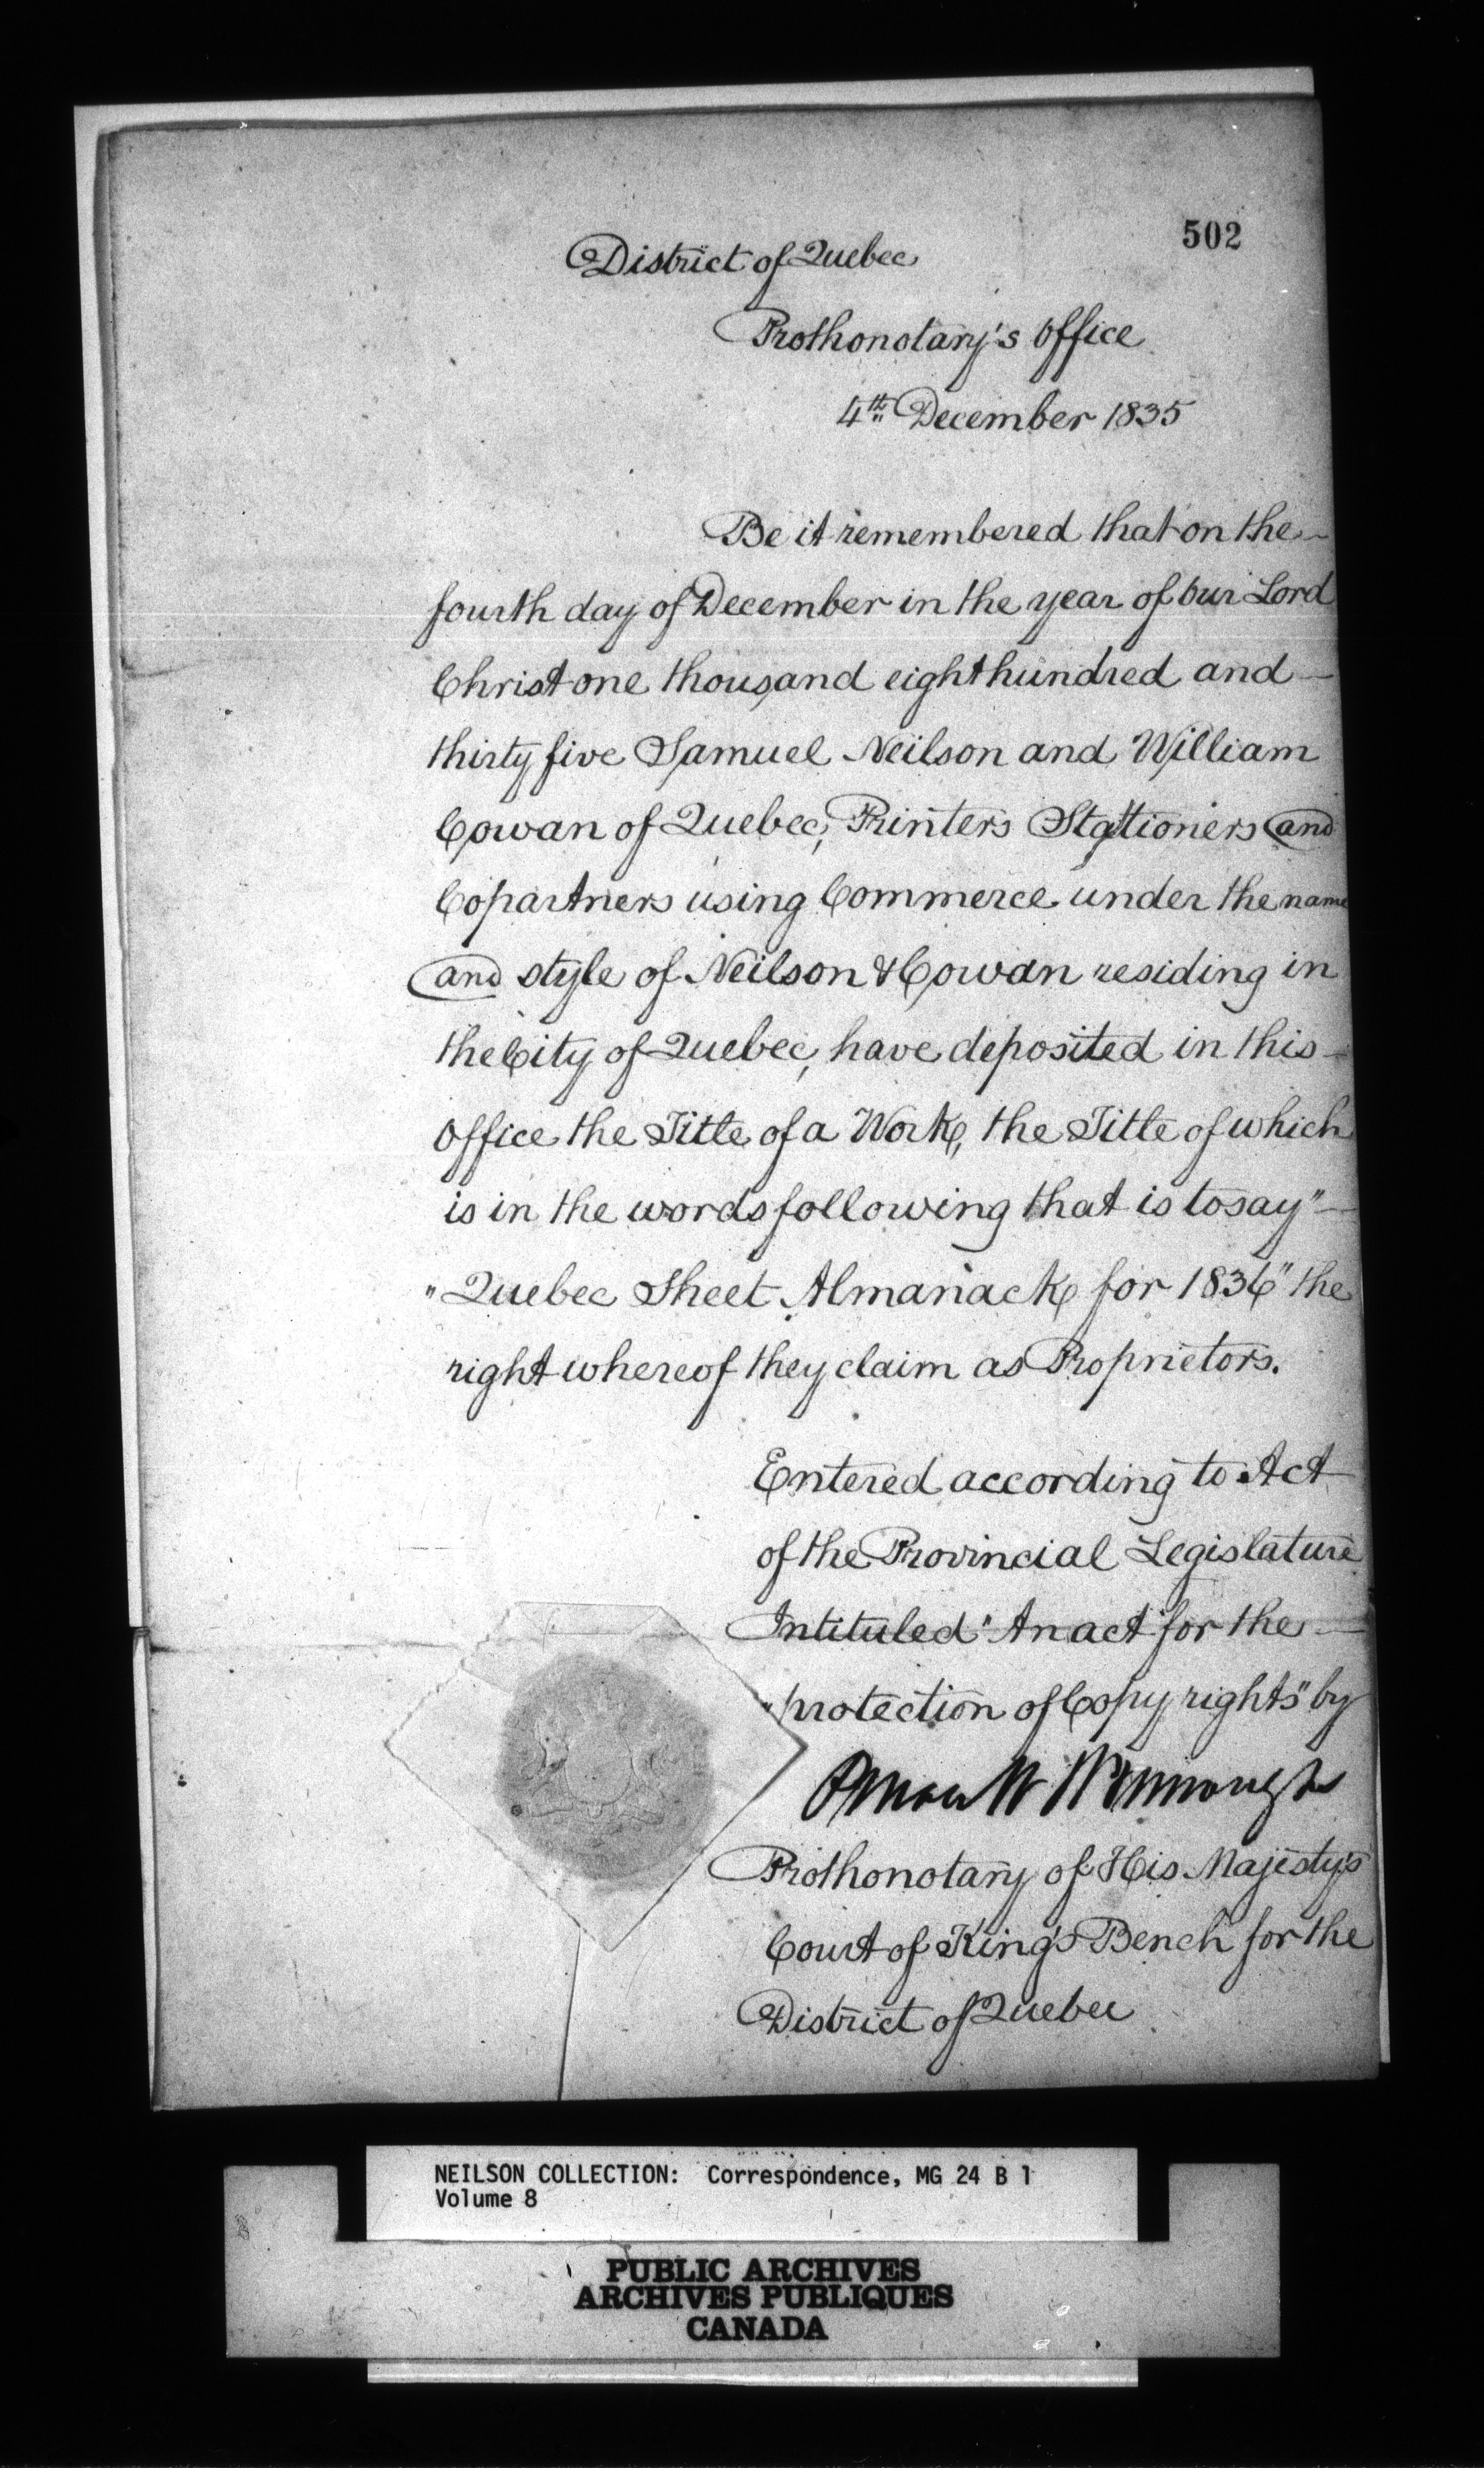 502
District of Quebec
Prothonotary's Office
4th December 1835
Be it remembered that on the
fourth day of December in the year of our Lord
Christ one thousand eight hundred and
thirty five Samuel Neilson and William
Cowan of Quebec, Printers Stationers and
Copartners using Commerce under the name
and style of Neilson & Cowan residing in
the City of Quebec, have deposited in this
Office the Title of a Work, the Title of which
is in the words following that is to say "
"Quebec Sheet Almanack for 1836" the
right whereof they claim as Proprietors.
Entered according to Act
of the Provincial Legislature
Intituled "An act for the
"protection of Copy rights" by
Prothonotary of His Majesty's
Court of King's Bench for the
District of Quebec
NEILSON COLLECTION: Correspondence, MG 24 B 1
Volume 8
PUBLIC ARCHIVES
ARCHIVES PUBLIQUES
CANADA